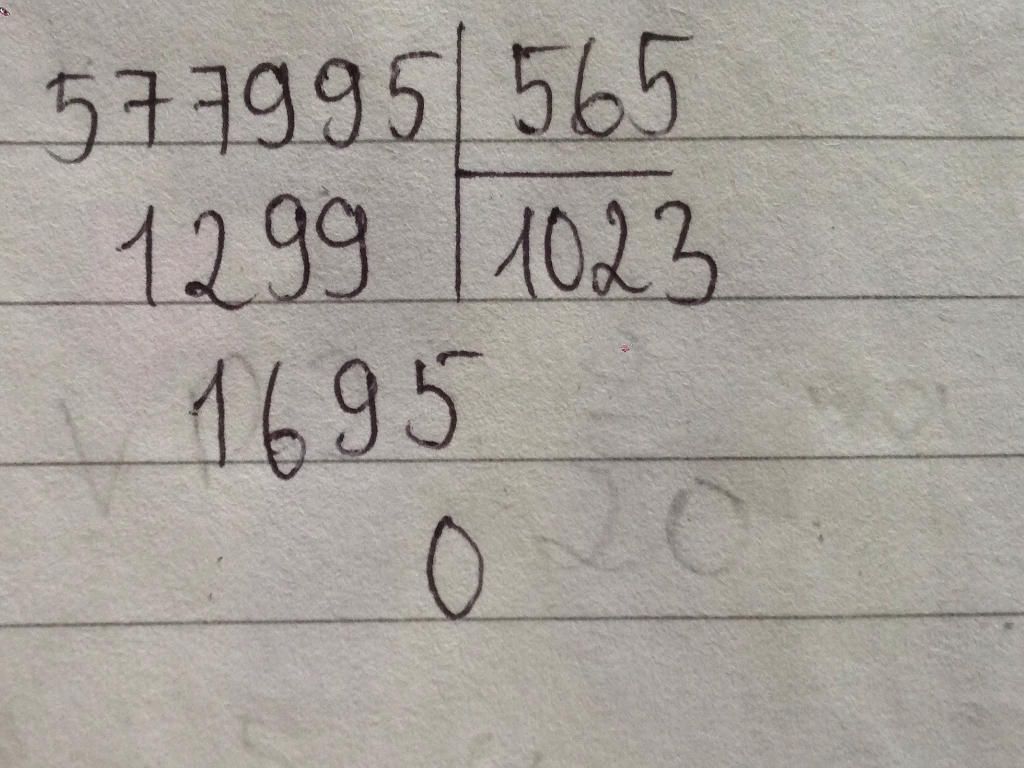 577995 565
1299 1023
1695
0
20